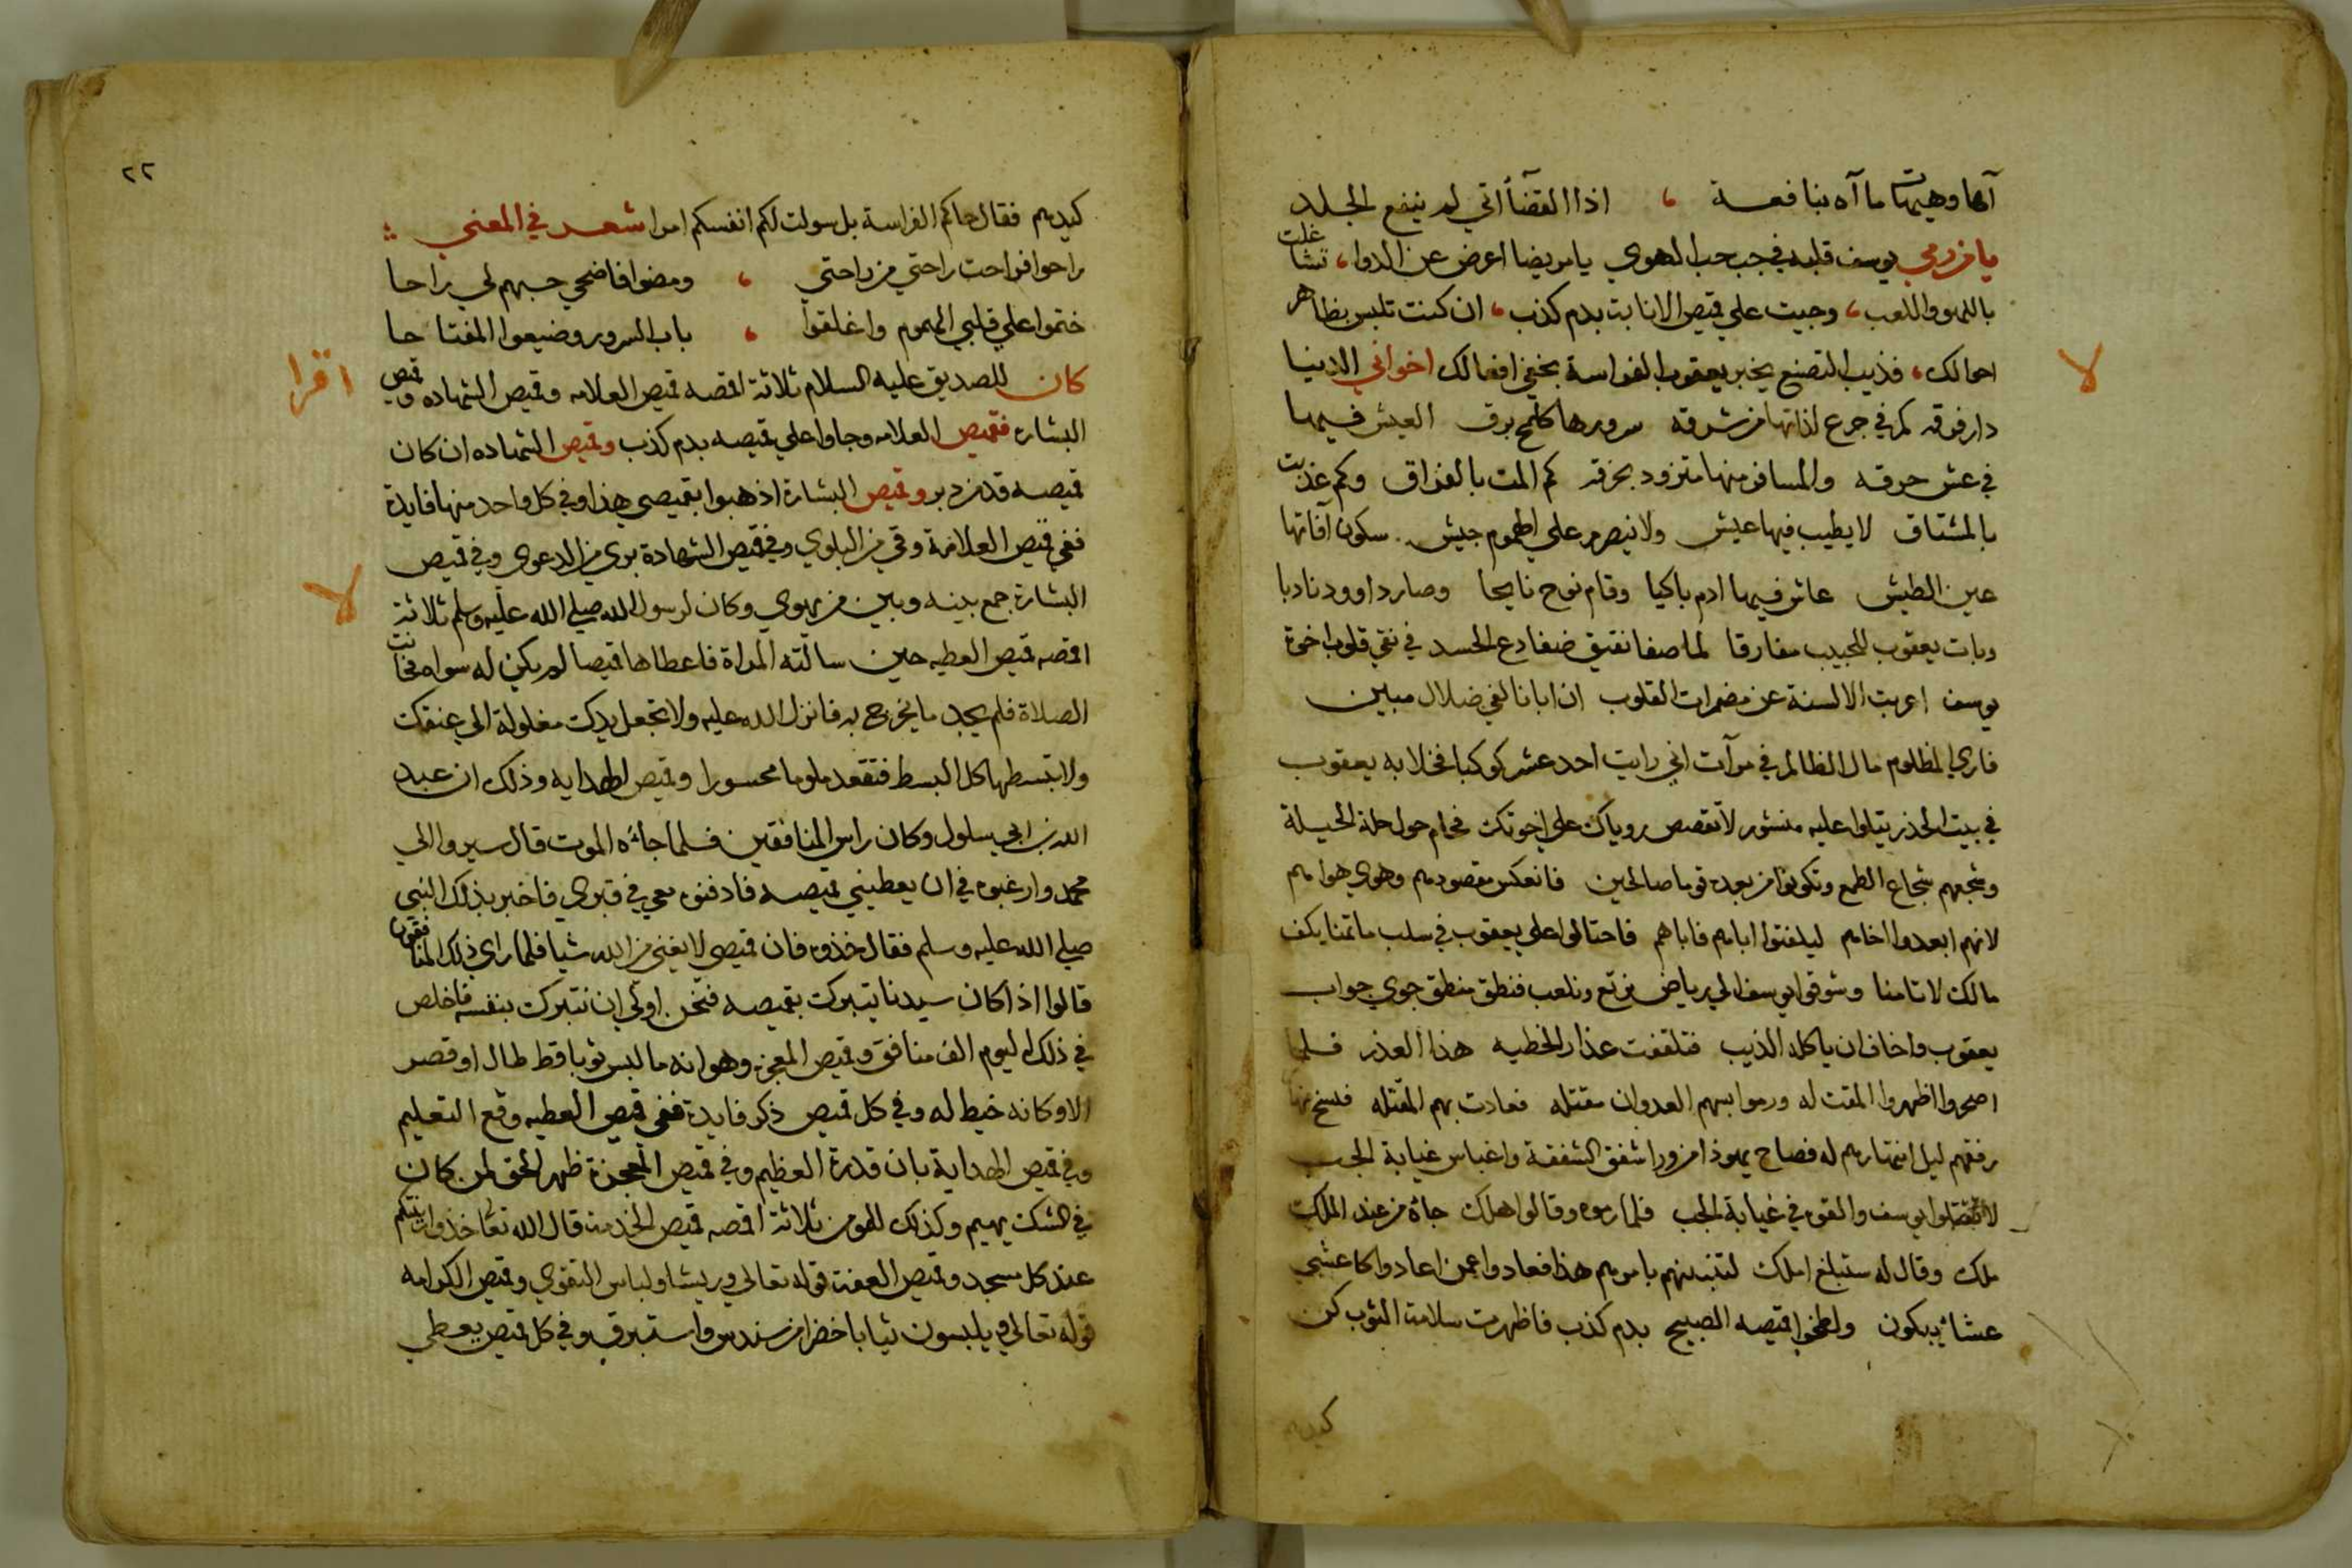 آها وهيهات ما آه بنافعة ، اذا القضاأتي لم ينفع الجلد
يا من رمي يوسف قلبه في جب حب الهوي يا مريضا اعرض عن الدوا، تشاغلت
باللهو واللعب، وجيت علي قميص الانابت بدم كذب، ان كنت تلبس بظاهر
احوالك، فذيب التصنع يخبر يعقوب الفراسة بخفي افعالك اخواني الدنيا
دار فرقه كم في جرع لذاتها من شرقه سرورها كلمح برق العيش فيها
في عش حرقه والمسافر منها متزود بخرقه كم المت بالفراق وكم عذبت
بالمشتاق لا يطيب فيها عيش ولا ينصرم علي الهموم جيش سكون آفاتها
عين الطيش عاش فيها ادم باكيا وقام نوح نايحا وصار داوود نادبا
وبات يعقوب للحبيب مفارقا لما صفا نقيق ضفادع الحسد في نقي قلوب اخوة
يوسف اعربت الالسنة عن مضمرات القلوب ان ابانا لفي ضلال مبين
فاري المظلوم مال الظالم في مرآت اني رايت احد عشر كوكبا فخلا به يعقوب
في بيت الحذر يتلوا عليه منشور لا تقصص روياك علي اخوتك فحام حول حلة الحيلة
وشجعهم شجاع الطمع وتكونوا من بعده قوما صالحين فانعكس مقصودهم وهوي هواهم
لانهم ابعدوا اخاهم ليلفتوا اباهم فاباهم فاحتالوا علي يعقوب في سلب ما تمنا بكف
مالك لا تامنا وشوقوا يوسف الي رياض نرتع ونلعب فنطق منطق جوي جواب
يعقوب واخاف ان ياكله الذيب فتلقفت عذار الخطيه هذا العذر فلما
اصحروا اظهروا المقت له ورموا بسهم العدوان مقتله فعادت بهم المقتله فنسخ
رفقهم ليل انتهارهم له فصاح يهوذا من ورا شفق الشفقة واغباس غيابة الجب
لا تقتلوا يوسف والقوه في غيابة الجب فلما رموه وقالوا هلك جاه من عند الملك
ملك وقال له ستبلغ املك لتنبئنهم بامرهم هذا فعادوا عمن اعادوا كاعشي
عشاء يبكون ولطخوا قميصه الصبيح بدم كذب فاظهرت سلامة الثوب كن
كيدهم
٢٢
كيدهم فقال حاكم الفراسة بل سولت لكم انفسكم امرا شعر في المعني
راحوا فراحت راحتي من راحتي ، ومضوا فاضحي حبهم لي راحا
ختموا علي قلبي الهموم واغلقوا ، باب السرور وضيعوا المفتاحا
اقرا كان للصديق عليه السلام ثلاثة اقمصه قميص العلامه وقميص الشهاده وقميص
البشاره فقميص العلامه وجاوا علي قميصه بدم كذب وقميص الشهاده ان كان
قميصه قد من دبر وقميص البشارة اذهبوا بقميصي هذا وفي كل واحد منها فايدة
ففي قميص العلامة وقي من البلوي وفي قميص الشهادة بري من الدعوي وفي قميص
لا البشارة جمع بينه وبين من يهوي وكان لرسول الله صلي الله عليه وسلم ثلاثة
اقمصه قميص العطيه حين سالته المراة فاعطاها قميصا لم يكن له سواه فحانت
الصلاة فلم يجد ما يخرج به فانزل الله عليه ولا تجعل يدك مغلولة الي عنقك
ولا تبسطها كل البسط فتقعد ملوما محسورا وقميص الهدايه وذلك ان عبد
الله بن ابي سلول وكان راس المنافقين فلما جاءه الموت قال سيروا الي
محمد وارغبوه في ان يعطيني قميصه فادفنوه معي في قبري فاخبر بذلك النبي
صلي الله عليه وسلم فقال خذوه فان قميصي لا يغني من الله شيا فلما راي ذلك المنافقون
قالوا اذا كان سيدنا يتبرك بقميصه فنحن اولي ان نتبرك بنفسه فاخلص
في ذلك اليوم الف منافق وقميص المعجزه وهو انه ما لبس ثوبا قط طال او قصر
الا وكانه خيط له وفي كل قميص ذكر فايدة ففي قميص العطيه وقع التعليم
وفي قميص الهداية بان قدرة العظيم وفي قميص المعجزة ظهر الحق لمن كان
في الشك يهيم وكذلك للمومن ثلاثة اقمصه قميص الخدمة قال الله تعا خذوا زينتكم
عند كل مسجد وقميص العفة قوله تعالي وريشا ولباس التقوي وقميص الكرامه
قوله تعالي ويلبسون ثيابا خضرا من سندس واستبرق وفي كل قميص يعطي